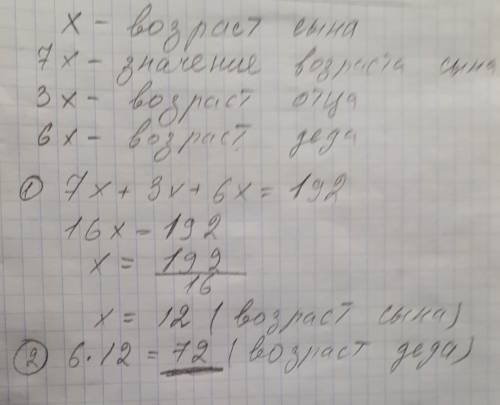 x - возраст сына
7x - значение возраста сына
3x - возраст отца
6x - возраст деда
① 7x + 3x + 6x = 192
16x - 192
x = 192/16
x = 12 ( возраст сына)
② 6 · 12 = 72 ( возраст деда)